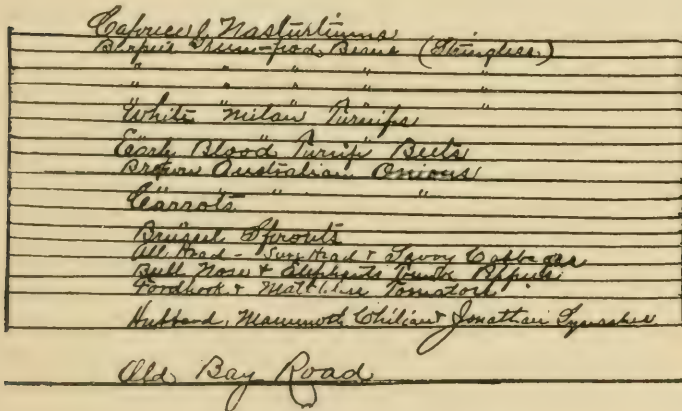 Caprice & Nasturtiums
Burpee's Green-pod Beans (Stringless)
" " " " "
" " " " "
White "Milan" Turnips
Early Blood Turnip Beets
Brown Australian Onions
" " "
Carrots
Brussel Sprouts
All Head - Sure Head & Savoy Cabbages
Bull Nose & Elephants Trunk Peppers
Fordhook & Matchless Tomatoes
Hubbard, Mammoth Chilian & Jonathan Squashes
Old Bay Road